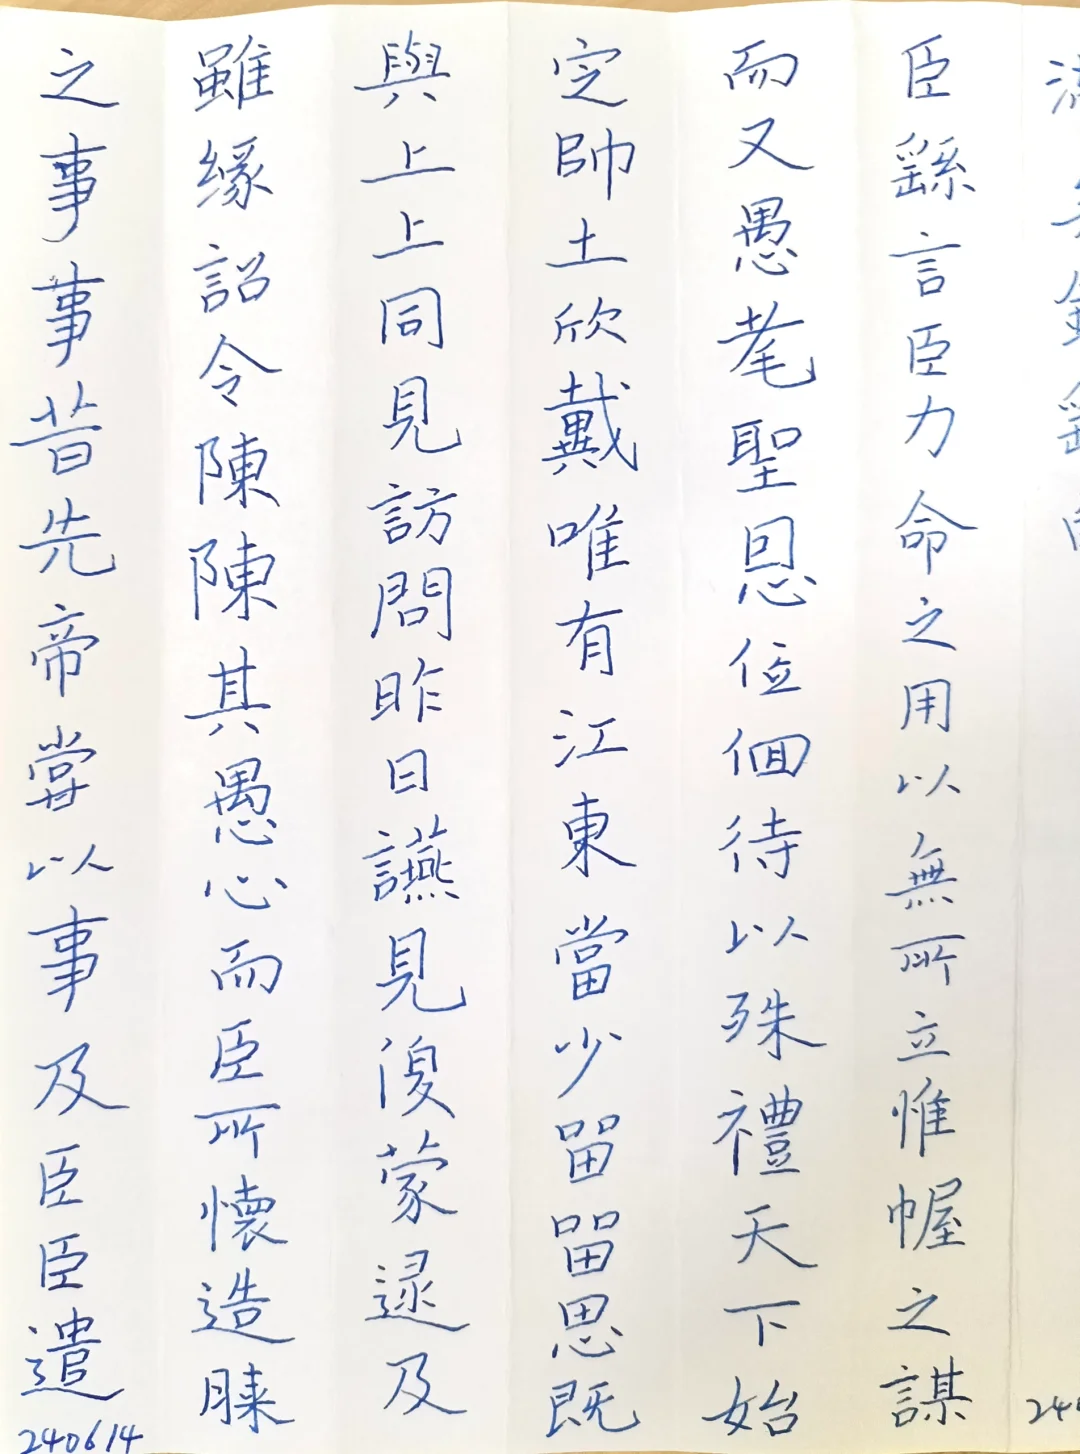 臣繇言臣力命之用以無所立惟幄之謀
而又愚耄聖恩位個待以殊禮天下始
定帥土欣戴唯有江東當少留留思既
與上上同見訪問昨日讌見復蒙逮及
雖缘詔令陳陳其愚心而臣所懷造膝
之事事昔先帝嘗以事及臣臣遣
240614